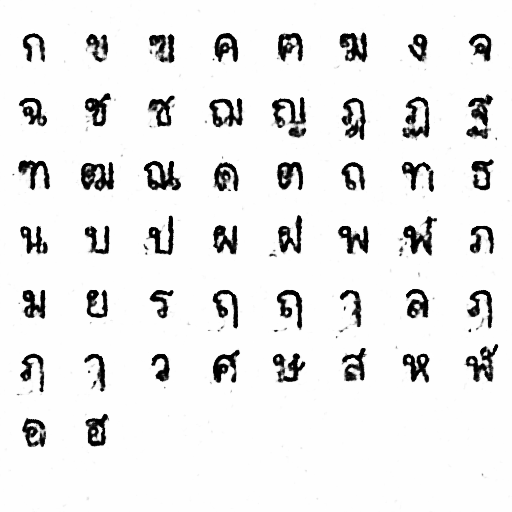 ก ข ฃ ค ฅ ฆ ง จ
ฉ ช ซ ฌ ญ ฎ ฏ ฐ
ฑ ฒ ณ ด ต ถ ท ธ
น บ ป ผ ฝ พ ฟ ภ
ม ย ร ฤ ฤ ล ฦ
ฦ ว ศ ษ ส ห ฬ
อ ฮ